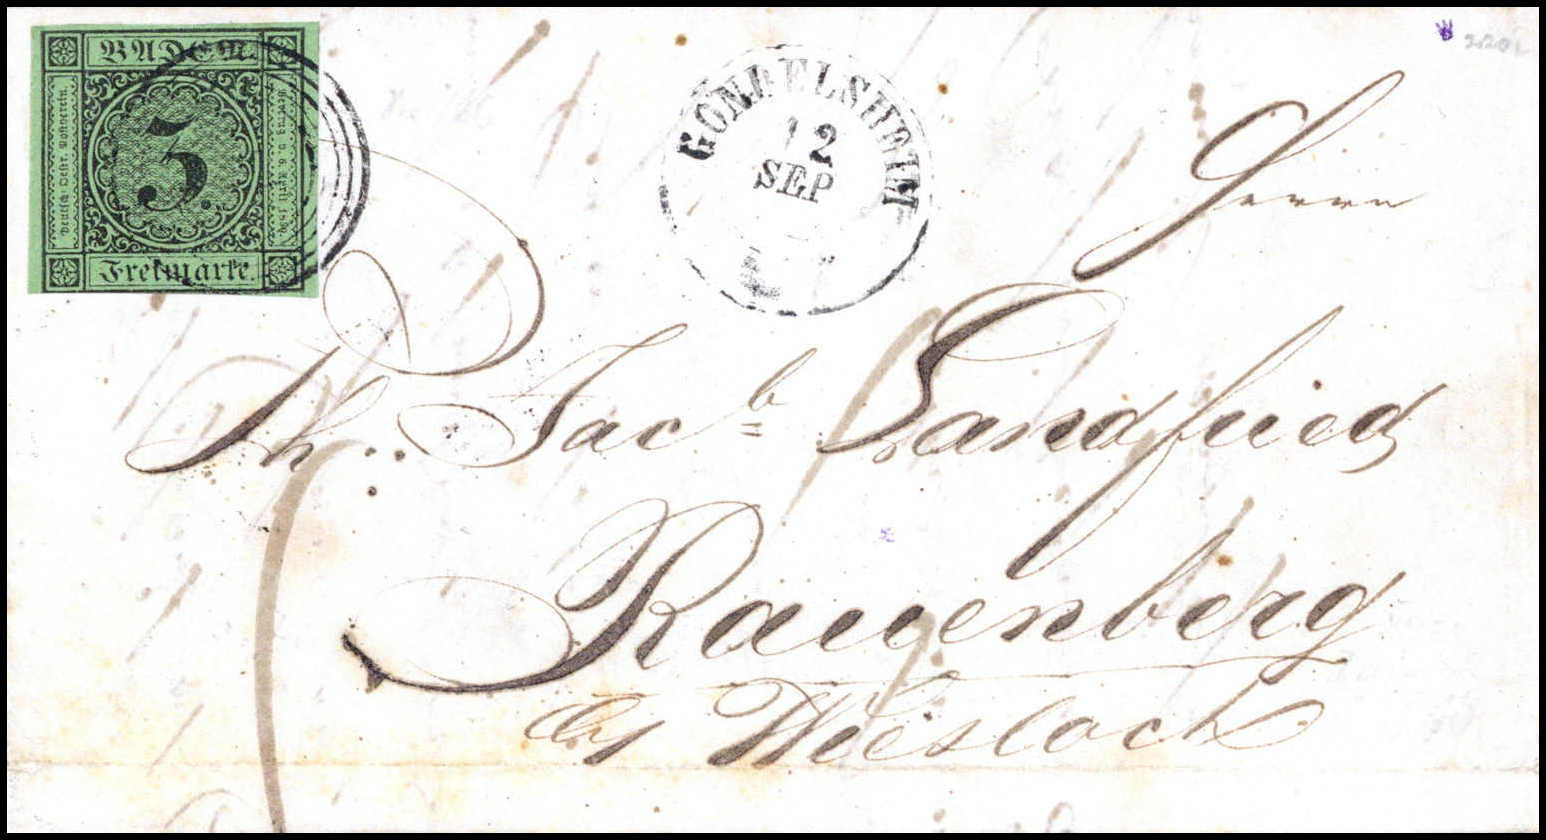 BADEN.
Deutsch-Oestr. Postverein.
3
Vertrag v. 6. April 1850
Freimarke.
GONDELSHEIM
12
SEP
Herrn
Ph. Jacb Landfried
Rauenberg
by Wiesloch